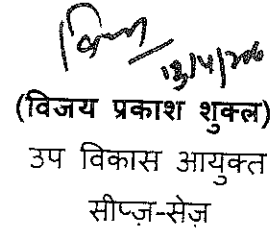 13/4/206
(विजय प्रकाश शुक्ल)
उप विकास आयुक्त
सीप्ज़-सेज़